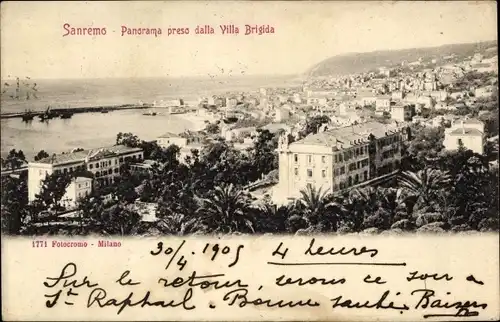 Sanremo - Panorama preso dalla Villa Brigida
1771 Fotocromo - Milano
30/4 1905 4 heures
Sur le retour, serons ce soir a
St. Raphaël. Bonne santé Baisers